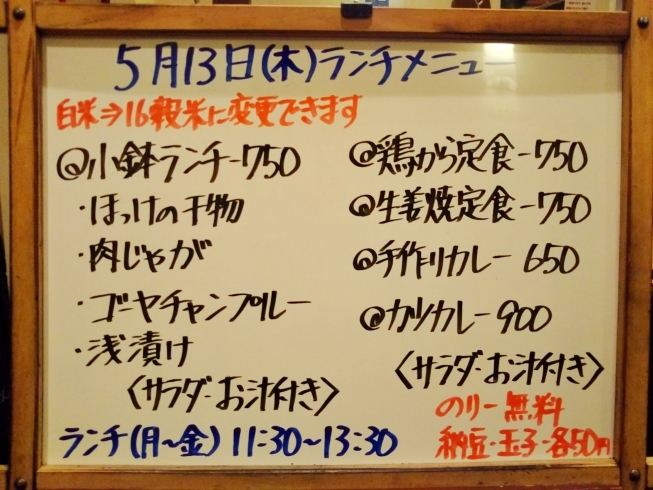 5月13日(木)ランチメニュー
白米⇒16穀米に変更できます
@小鉢ランチ-750
・ほっけの干物
・肉じゃが
・ゴーヤチャンプルー
・浅漬け
〈サラダ・お汁付き〉
ランチ(月〜金) 11:30〜13:30
@鶏から定食-750
@生姜焼定食-750
@手作りカレー 650
@カツカレー900
〈サラダ・お汁付き〉
のりー無料
納豆・玉子・各50円